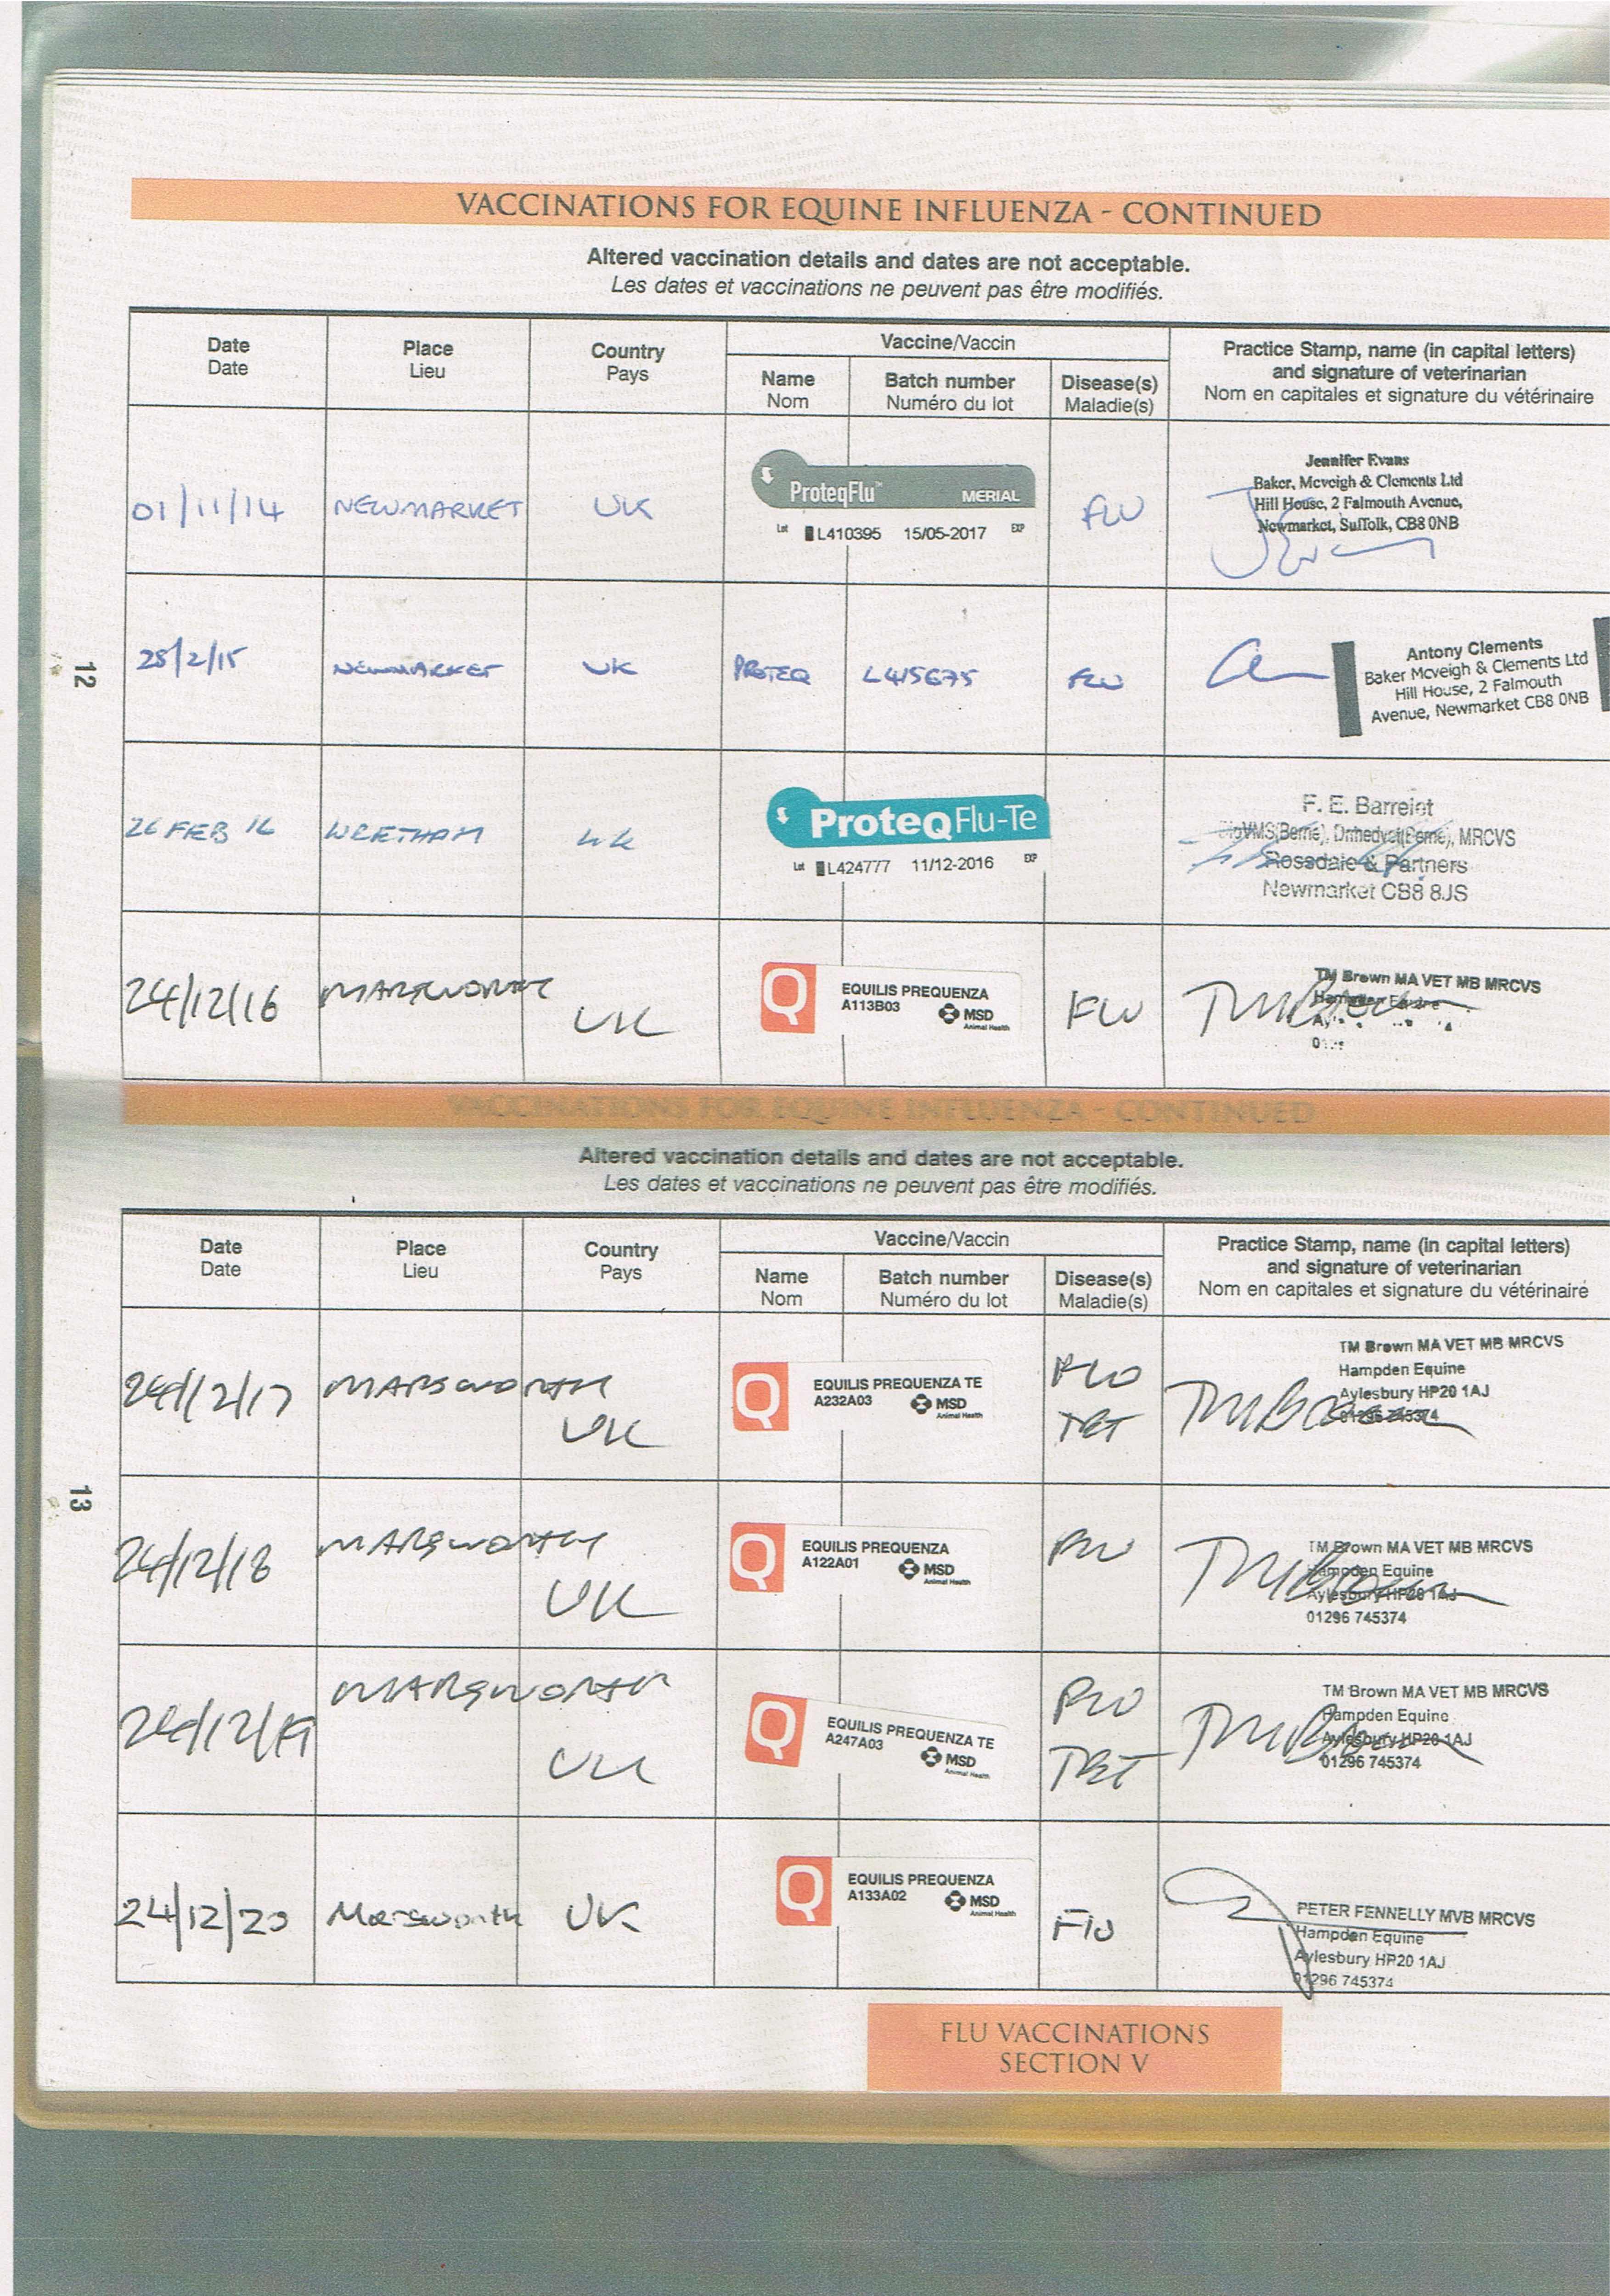 VACCINATIONS FOR EQUINE INFLUENZA - CONTINUED
Altered vaccination details and dates are not acceptable.
Les dates et vaccinations ne peuvent pas être modifiés.
Date Place Country Vaccine/Vaccin Practice Stamp, name (in capital letters)
Date Lieu Pays and signature of veterinarian
Name Batch number Disease(s) Nom en capitales et signature du vétérinaire
Nom Numéro du lot Maladie(s)
01/11/14 NEWMARKET UK ProteqFlu™ MERIAL FLU
Lot L410395 15/05-2017 EXP
Jennifer Evans
Baker, Mcveigh & Clements Ltd
Hill House, 2 Falmouth Avenue,
Newmarket, Suffolk, CB8 0NB
12
28/2/15 NEWMARKET UK PROTEQ L415675 FLU
Antony Clements
Baker Mcveigh & Clements Ltd
Hill House, 2 Falmouth
Avenue, Newmarket CB8 0NB
26 FEB 16 WRETHAM UK ProteqFlu-Te
Lot L424777 11/12-2016 EXP
F. E. Barrelet
MRCVS
Rossdale & Partners
Newmarket CB8 8JS
24/12/16 MARSWORTH UK
EQUILIS PREQUENZA
A113B03 MSD
Animal Health
FLU
TM Brown MA VET MB MRCVS
Hampden Equine
VACCINATIONS FOR EQUINE INFLUENZA - CONTINUED
Altered vaccination details and dates are not acceptable.
Les dates et vaccinations ne peuvent pas être modifiés.
Date Place Country Vaccine/Vaccin Practice Stamp, name (in capital letters)
Date Lieu Pays and signature of veterinarian
Name Batch number Disease(s) Nom en capitales et signature du vétérinaire
Nom Numéro du lot Maladie(s)
24/12/17 MARSWORTH UK
EQUILIS PREQUENZA TE
A232A03 MSD
Animal Health
FLU
TET
TM Brown MA VET MB MRCVS
Hampden Equine
Aylesbury HP20 1AJ
01296 745374
13
24/12/18 MARSWORTH UK
EQUILIS PREQUENZA
A122A01 MSD
Animal Health
FLU
TM Brown MA VET MB MRCVS
Hampden Equine
Aylesbury HP20 1AJ
01296 745374
24/12/19 MARSWORTH UK
EQUILIS PREQUENZA TE
A247A03 MSD
Animal Health
FLU
TET
TM Brown MA VET MB MRCVS
Hampden Equine
Aylesbury HP20 1AJ
01296 745374
24/12/20 Marsworth UK
EQUILIS PREQUENZA
A133A02 MSD
Animal Health
Flu
PETER FENNELLY MVB MRCVS
Hampden Equine
Aylesbury HP20 1AJ
01296 745374
FLU VACCINATIONS
SECTION V